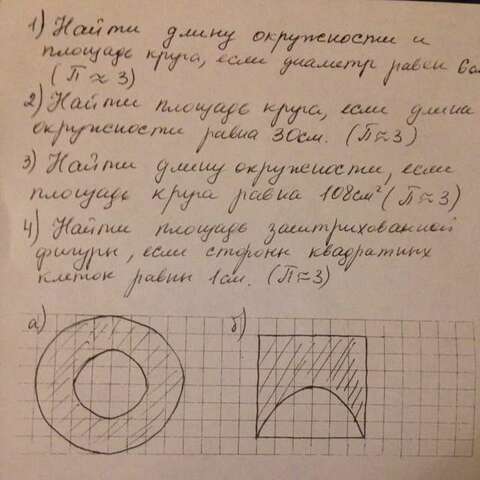 1) Найти длину окружности и
площадь круга, если диаметр равен 6см
(П ≈ 3)
2) Найти площадь круга, если длина
окружности равна 30см. (П≈3)
3) Найти длину окружности, если
площадь круга равна 108см² (П≈3)
4) Найти площадь заштрихованной
фигуры, если стороны квадратных
клеток равны 1см. (П≈3)
а) б)